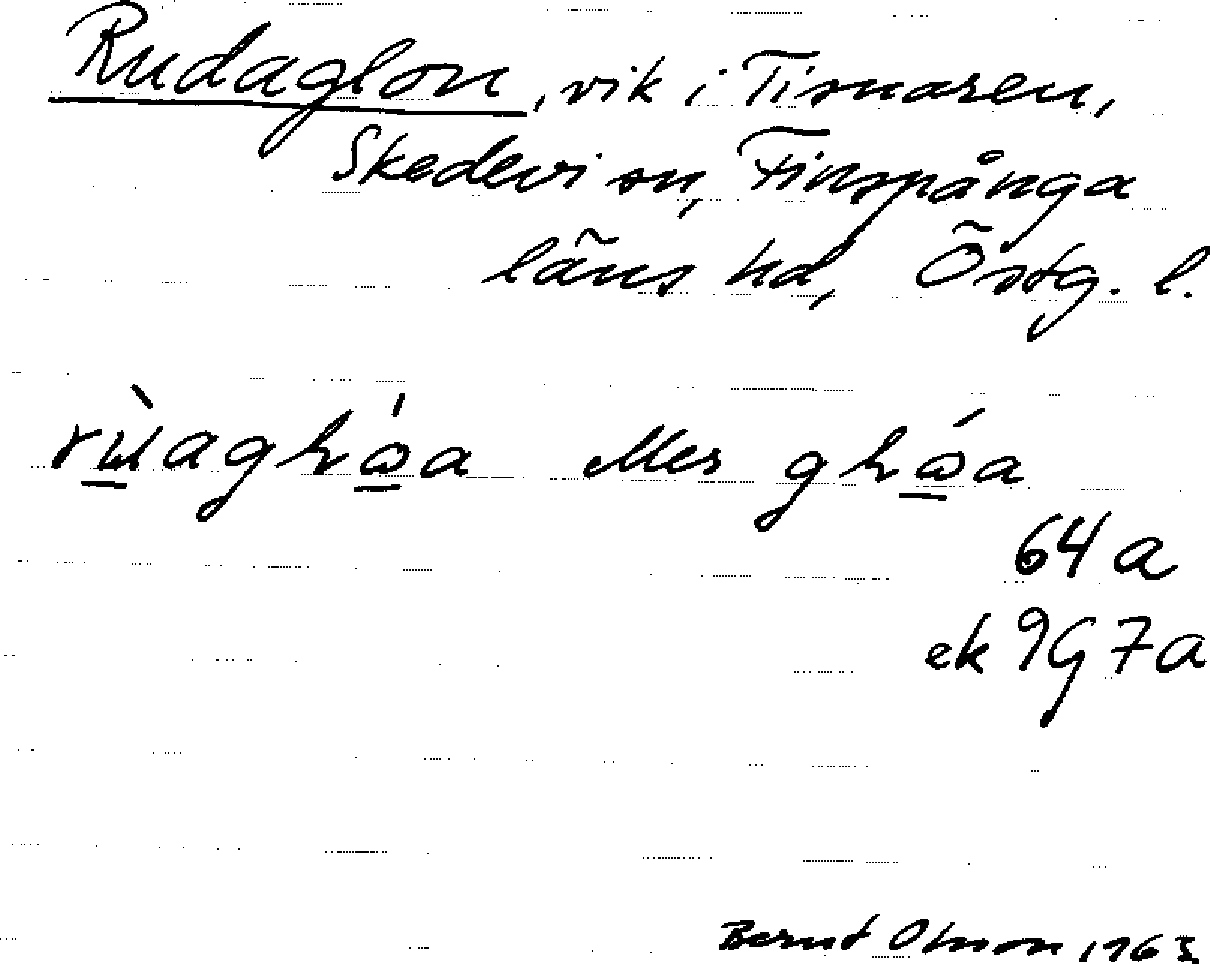 Rudaglon, vik i Tisnaren,
Skedevi sn, Finspånga
läns hd, Östg. l.
eller
64 a
ek 9G7a
Bernt Olsson 1963